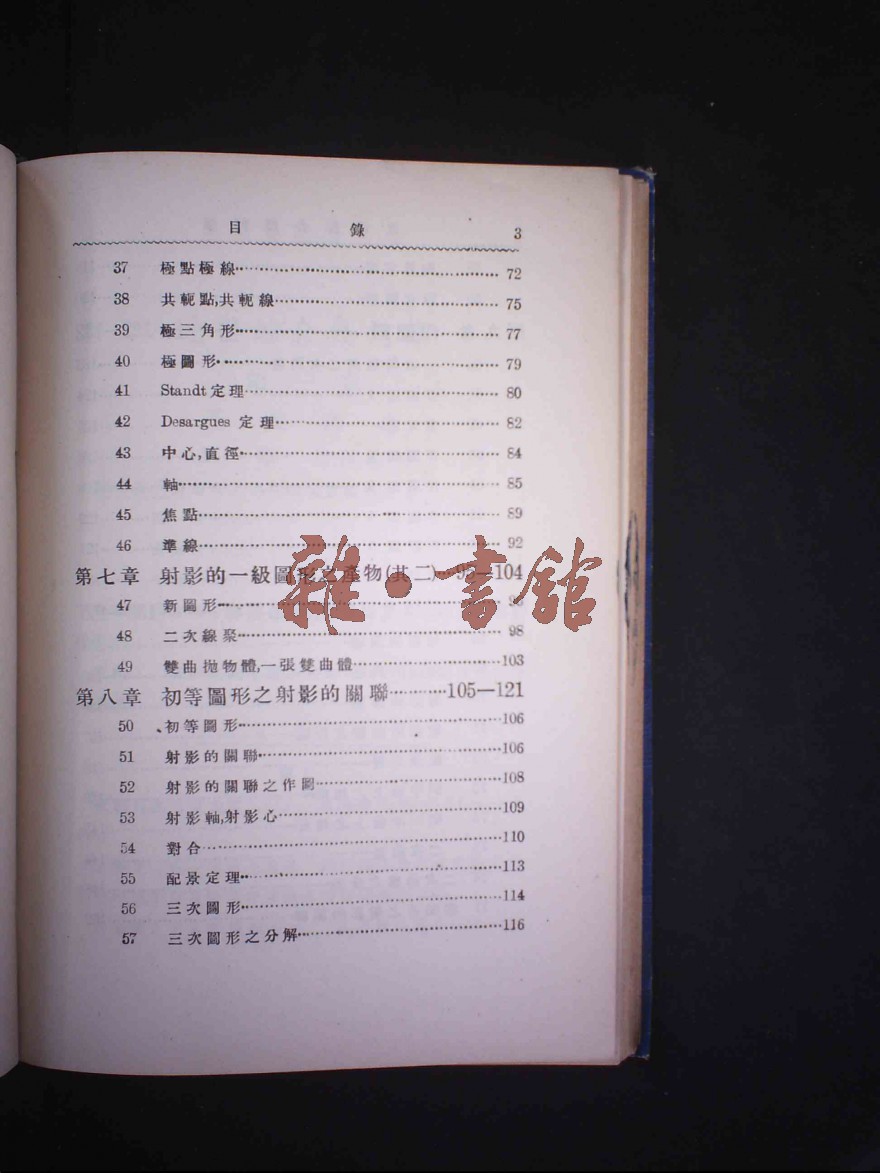 目 錄 3
37 極點極線 72
38 共軛點,共軛線 75
39 極三角形 77
40 極圖形 79
41 Standt定理 80
42 Desargues 定理 82
43 中心,直徑 84
44 軸 85
45 焦點 89
46 準線 92
第七章 射影的一級圖形之產物(其二) —104
47 新圖形
48 二次線聚 98
49 雙曲拋物體,一張雙曲體 103
第八章 初等圖形之射影的關聯 105—121
50 初等圖形 106
51 射影的關聯 106
52 射影的關聯之作圖 108
53 射影軸,射影心 109
54 對合 110
55 配景定理 113
56 三次圖形 114
57 三次圖形之分解 116
雜·書館